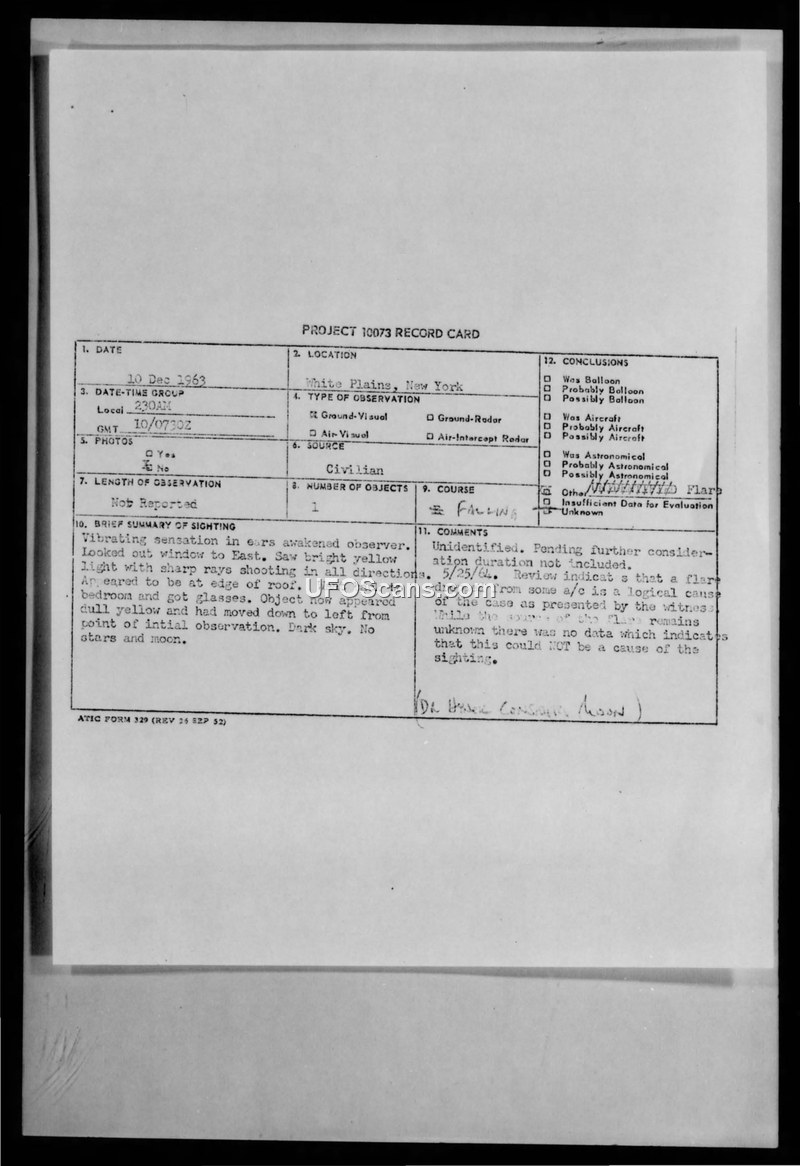 PROJECT 10073 RECORD CARD
1. DATE
10 Dec 1963
2. LOCATION
White Plains, New York
12. CONCLUSIONS
Was Balloon
Probably Balloon
Possibly Balloon
Was Aircraft
Probably Aircraft
Possibly Aircraft
Was Astronomical
Probably Astronomical
Possibly Astronomical
Other Flare
Insufficient Data for Evaluation
Unknown
3. DATE-TIME GROUP
Local 230AM
GMT 10/0730Z
4. TYPE OF OBSERVATION
Ground-Visual Ground-Radar
Air-Visual Air-Intercept Radar
5. PHOTOS
Yes
No
6. SOURCE
Civilian
7. LENGTH OF OBSERVATION
Not Reported
8. NUMBER OF OBJECTS
1
9. COURSE
FALLING
10. BRIEF SUMMARY OF SIGHTING
Vibrating sensation in ears awakened observer.
Looked out window to East. Saw bright yellow
light with sharp rays shooting in all directions.
Appeared to be at edge of roof.
bedroom and got glasses. Object now appeared
dull yellow and had moved down to left from
point of intial observation. Dark sky. No
stars and moon.
11. COMMENTS
Unidentified. Pending further consider-
ation duration not included.
5/25/64. Review indicat s that a flare
from some a/c is a logical cause
of the case as presented by the witness
While the source of the flare remains
unknown there was no data which indicates
that this could NOT be a cause of the
sighting.
(Dr Hynek Moon)
ATIC FORM 329 (REV 26 SEP 52)
UFOScans.com